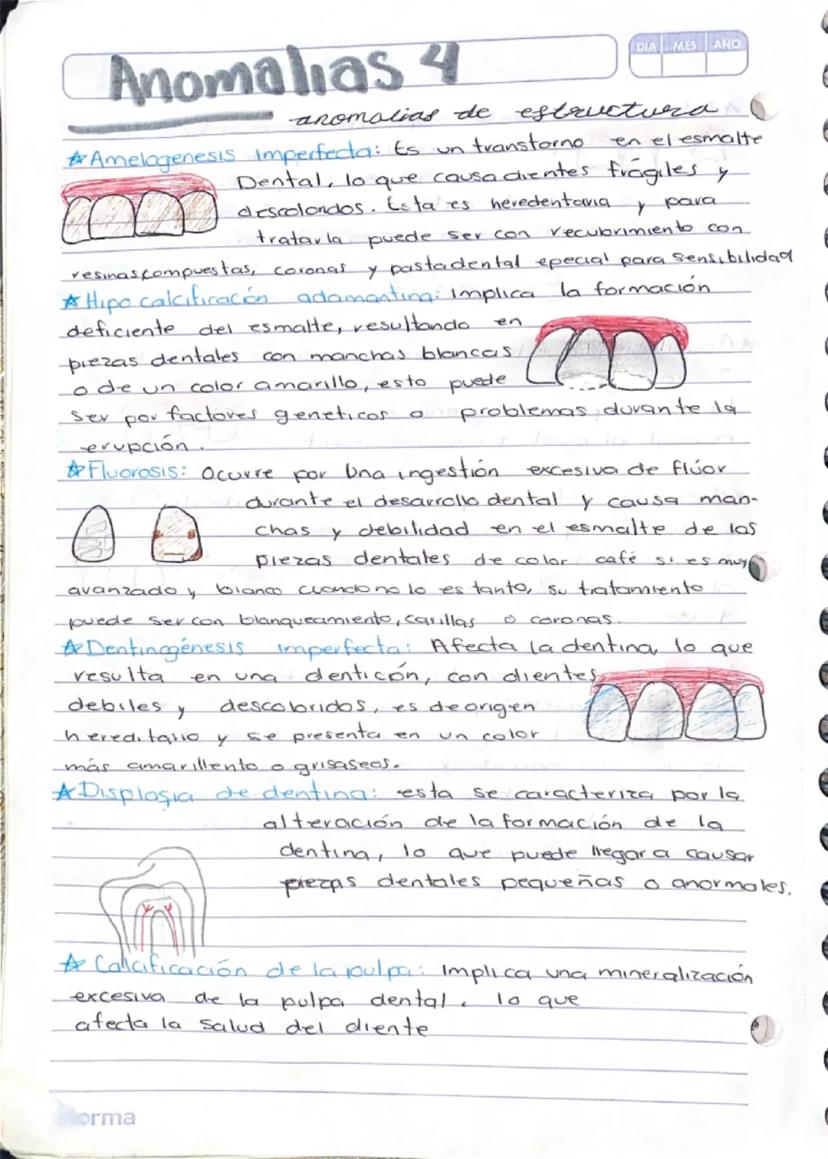 Anomalias 4
DIA MES AÑO
anomalias de estructura
Amelogenesis imperfecta: Es un transtorno en el esmalte
Dental, lo que causa dientes frágiles y
descoloridos. Esta es heredentaria y para
tratarla puede ser con recubrimiento con
resinas compuestas, coronas y pasta dental epecial para sensibilidad
Hipo calcificación adamantina: implica la formación
deficiente del esmalte, resultando en
piezas dentales con manchas blancas
o de un color amarillo, esto puede
ser por factores geneticos o problemas durante la
erupción.
Fluorosis: Ocurre por una ingestión excesiva de flúor
durante el desarrollo dental y causa man-
chas y debilidad en el esmalte de las
piezas dentales de color café si es muy
avanzado y blanco cuando no lo es tanto, su tratamiento
puede ser con blanqueamiento, carillas o coronas.
Dentinogénesis imperfecta: Afecta la dentina, lo que
resulta en una denticón, con dientes
debiles y descobridos, es de origen
hereditario y se presenta en un color
más amarillento o grisaseos.
Displasia de dentina: esta se caracteriza por la
alteración de la formación de la
dentina, lo que puede llegar a causar
piezas dentales pequeñas o anormales.
Calcificación de la pulpa: Implica una mineralización
excesiva de la pulpa dental, lo que
afecta la salud del diente
orma